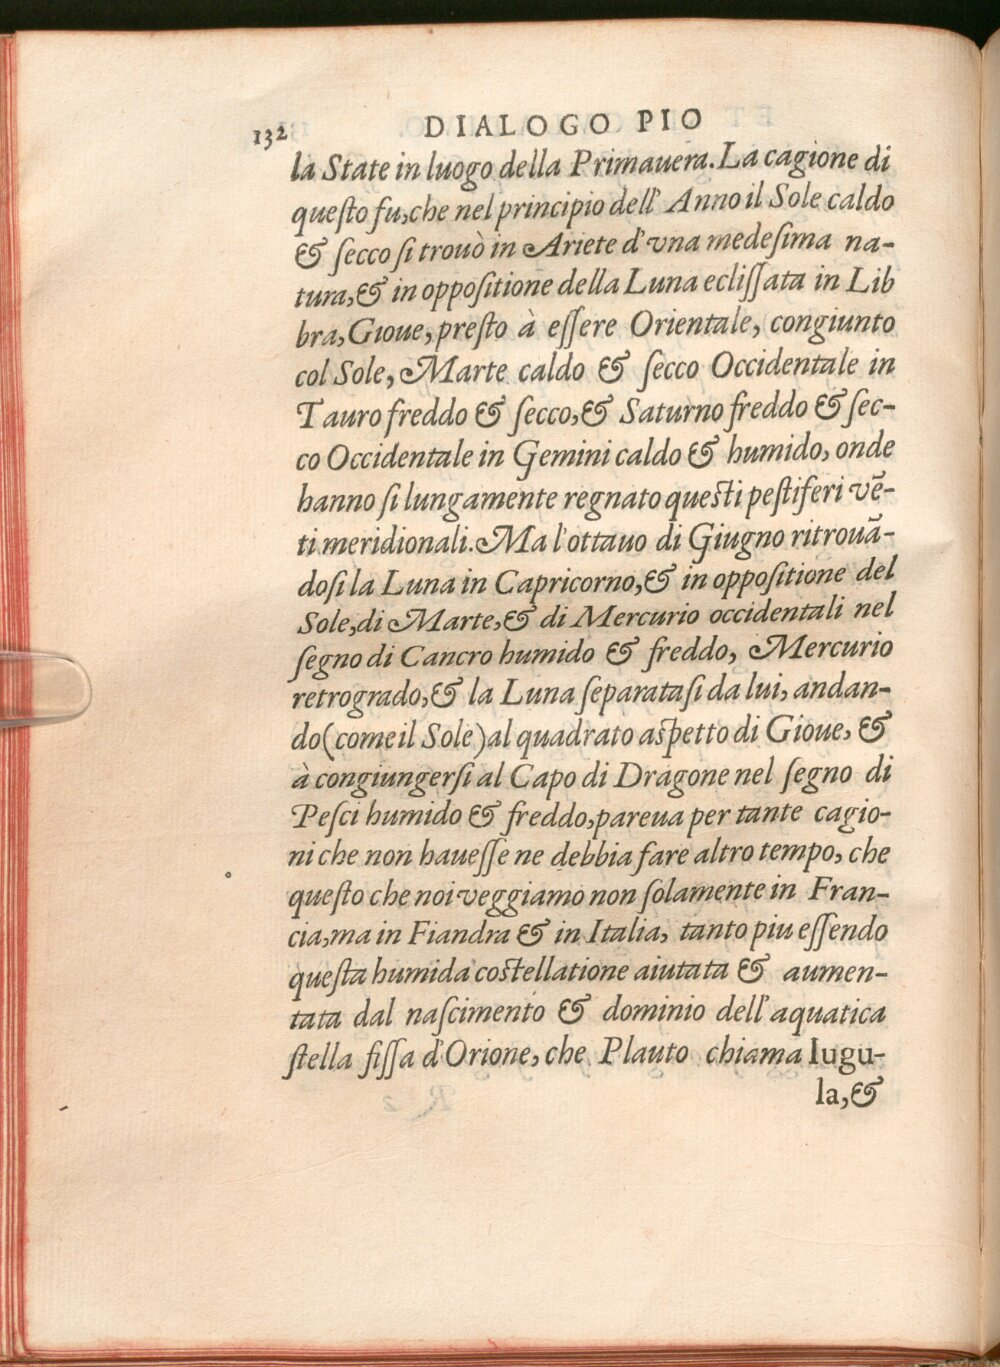 132 DIALOGO PIO
la State in luogo della Primauera. La cagione di
queſto fu, che nel principio dell' Anno il Sole caldo
& ſecco ſi trouò in Ariete d'vna medeſima na-
tura, & in oppoſitione della Luna ecliſſata in Lib
bra, Gioue, preſto à eſſere Orientale, congiunto
col Sole, Marte caldo & ſecco Occidentale in
Tauro freddo & ſecco, & Saturno freddo & ſec-
co Occidentale in Gemini caldo & humido, onde
hanno ſi lungamente regnato queſti peſtiferi vē-
ti meridionali. Ma l'ottauo di Giugno ritrouā-
doſi la Luna in Capricorno, & in oppoſitione del
Sole, di Marte, & di Mercurio occidentali nel
ſegno di Cancro humido & freddo, Mercurio
retrogrado, & la Luna ſeparataſi da lui, andan-
do (come il Sole) al quadrato aſpetto di Gioue, &
à congiungerſi al Capo di Dragone nel ſegno di
Peſci humido & freddo, pareua per tante cagio-
ni che non haueſſe ne debbia fare altro tempo, che
queſto che noi veggiamo non ſolamente in Fran-
cia, ma in Fiandra & in Italia, tanto piu eſſendo
queſta humida coſtellatione aiutata & aumen-
tata dal naſcimento & dominio dell'aquatica
ſtella fiſſa d'Orione, che Plauto chiama Iugu-
la, &